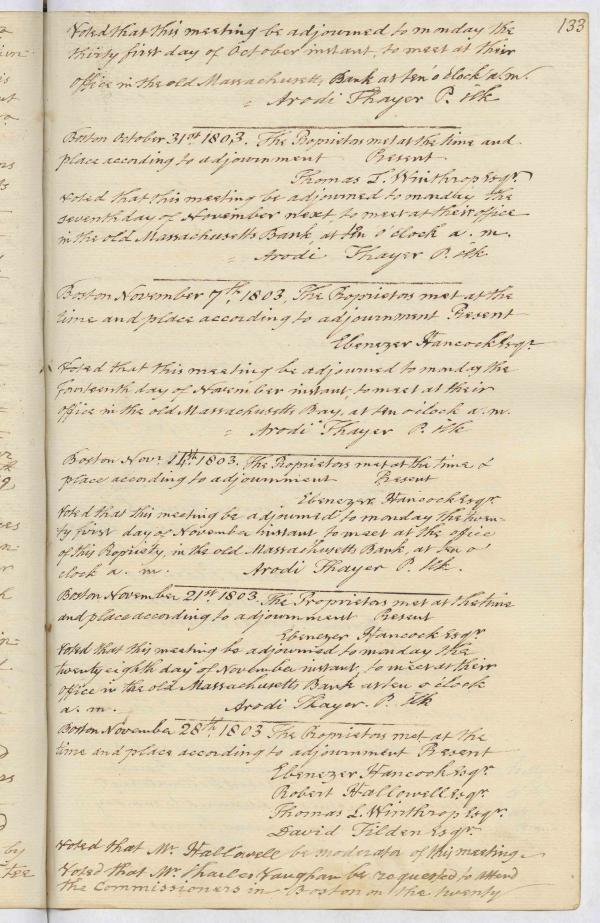 133
Voted that this meeting be adjourned to monday the
thirty first day of October instant, to meet at their
office in the old Massachusetts Bank at ten o'clock a.m.
Arodi Thayer P. Clk
Boston October 31st 1803. The Proprietors met at the time and
place according to adjournment Present
Thomas L. Winthrop Esqr.
Voted that this meeting be adjourned to monday the
seventh day of November next, to meet at their office
in the old Massachusetts Bank, at ten o'clock a. m.
Arodi Thayer P. Clk
Boston November 7th 1803, The Proprietors met at the
time and place according to adjournment Present
Ebenezer Hancock Esqr
Voted that this meeting be adjourned to monday the
Fourteenth day of November instant, to meet at their
office in the old Massachusetts Bay, at ten o'clock a.m.
Arodi Thayer P. Clk
Boston Novr 14th 1803. The Proprietors met at the time &
place according to adjournment Present
Ebenezer Hancock Esqr.
Voted that this meeting be adjourned to monday the twen-
ty first day of November instant to meet at the office
of this Propriety, in the old Massachusetts Bank, at ten o'
clock a. m. Arodi Thayer P. Clk.
Boston November 21st 1803 The Proprietors met at the time
and place according to adjournment Present
Ebenezer Hancock Esqr.
Voted that this meeting be adjourned to monday the
twenty eighth day of November instant, to meet at their
office in the old Massachusetts Bank at ten o'clock
a. m. Arodi Thayer. P. Clk
Boston November 28th 1803 The Proprietors met at the
time and place according to adjournment Present
Ebenezer Hancock Esqr.
Robert Hallowell Esqr.
Thomas L. Winthrop Esqr.
David Tilden Esqr.
Voted that Mr. Hallowell be moderator of this meeting
Voted that Mr. Charles Vaughan be requested to attend
the Commissioners in Boston on the twenty